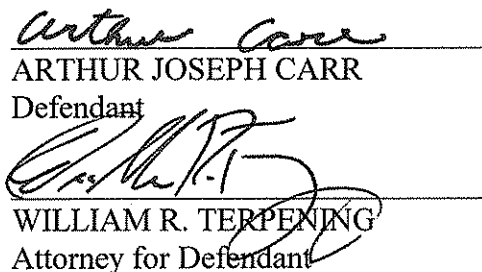 Arthur Carr
ARTHUR JOSEPH CARR
Defendant
WILLIAM R. TERPENING
Attorney for Defendant